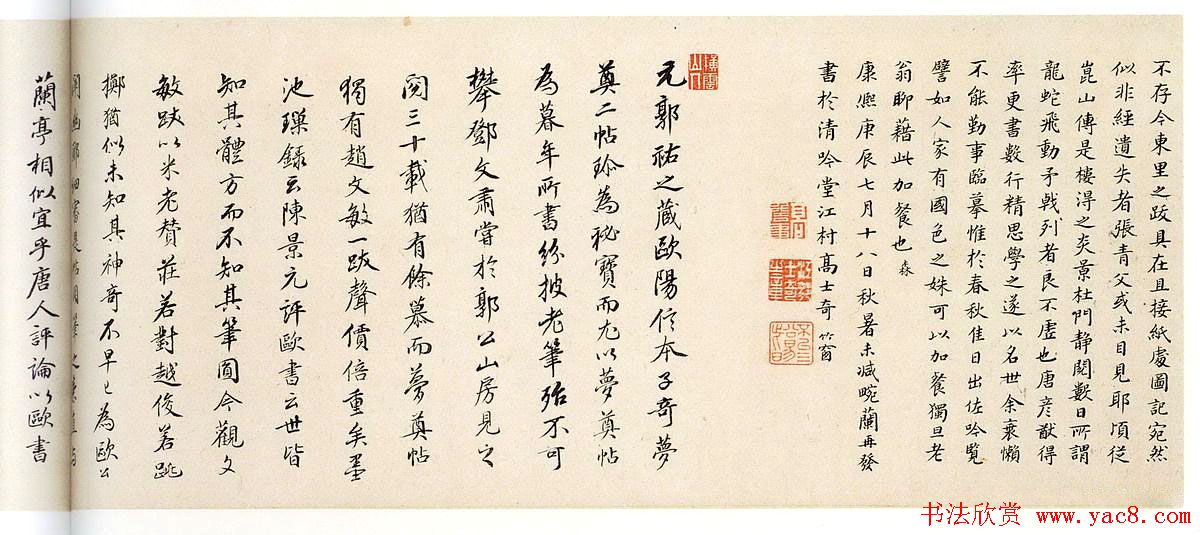 不存今東里之跋具在且接紙處圖記宛然
似非經遺失者張青父或未目見耶頃從
崑山傳是樓得之炎景杜門靜閱數日所謂
龍蛇飛動矛戟列者良不虛也唐彥猷得
率更書數行精思學之遂以名世余衰懶
不能勤事臨摹惟於春秋佳日出佐吟覽
譬如人家有國色之姝可以加餐獨旦老
翁聊藉此加餐也 森
康熙庚辰七月十八日秋暑未減畹蘭再發
書於清吟堂江村高士奇 竹窗
元郭祐之藏歐陽信本子奇夢
奠二帖珍為秘寶而尤以夢奠帖
為暮年所書紛披老筆殆不可
攀鄧文肅嘗於郭公山房見之
閱三十載猶有餘慕而夢奠帖
獨有趙文敏一跋聲價倍重矣墨
池璅錄云陳景元評歐書云世皆
知其體方而不知其筆圓今觀文
敏跋以米老贊莊若對越俊若跳
擲猶似未知其神奇不早已為歐公
蘭亭相似宜乎唐人評論以歐書
书法欣赏 www.yac8.com